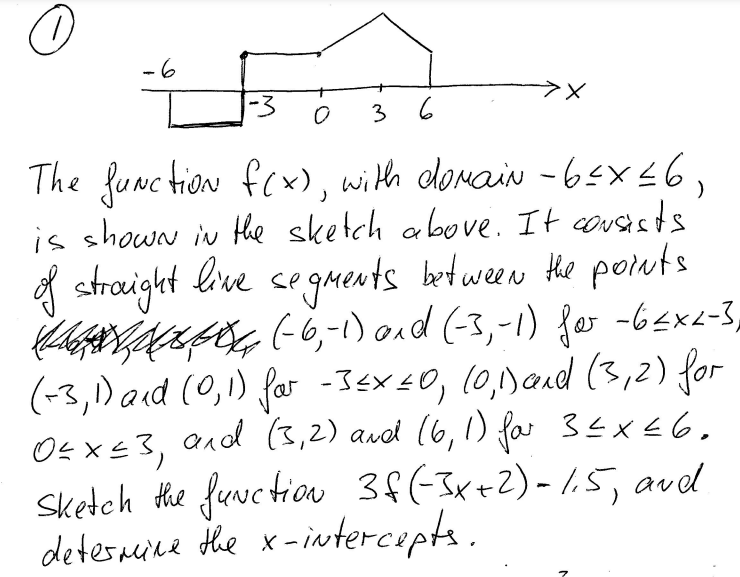 1
-6
-3 0 3 6 x
The function f(x), with domain -6≤x≤6,
is shown in the sketch above. It consists
of straight line segments between the points
(-6,-1) and (-3,-1) for -6≤x<-3,
(-3,1) and (0,1) for -3≤x≤0, (0,1) and (3,2) for
0≤x≤3, and (3,2) and (6,1) for 3≤x≤6.
Sketch the function 3f(-3x+2)-1.5, and
determine the x-intercepts.